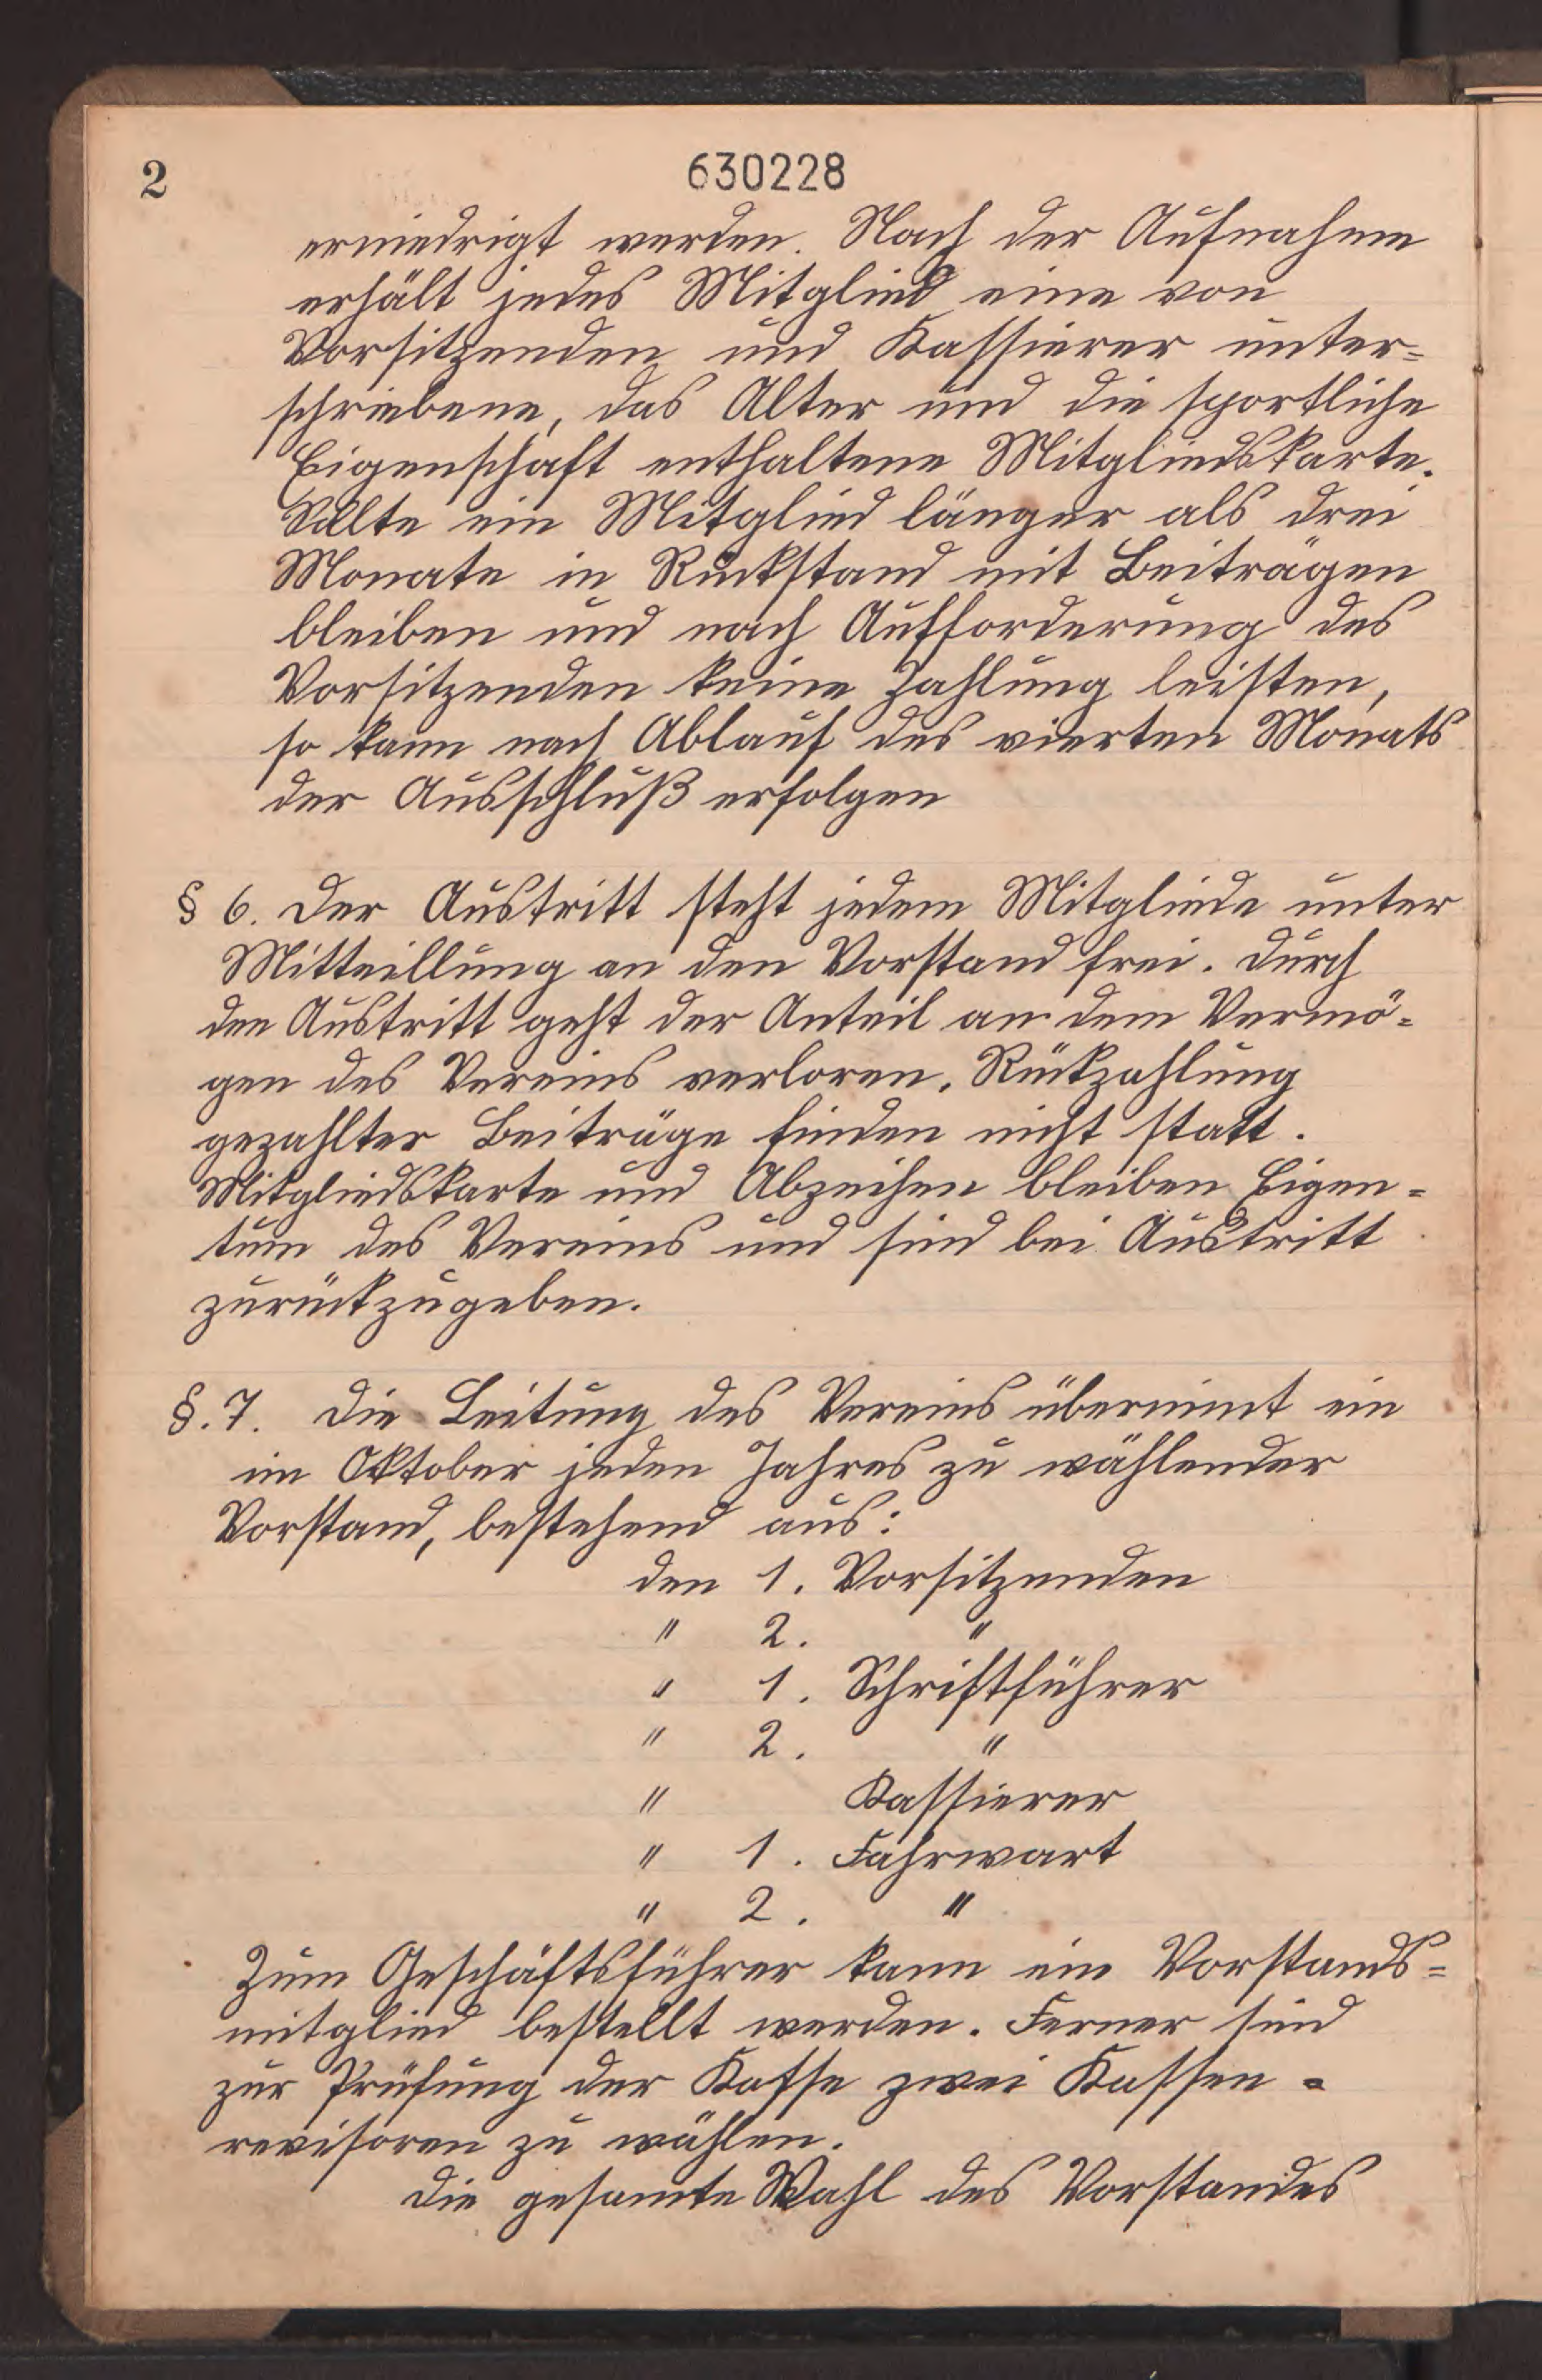 2
630228
erniedrigt werden. Nach der Aufnahme
erhält jedes Mitglied eine von
Vorsitzenden und Kassierer unter=
schriebene, das Alter und die sportliche
Eigenschaft enthaltene Mitgliedskarte.
Sollte ein Mitglied länger als drei
Monate in Rückstand mit Beiträgen
bleiben und nach Aufforderung des
Vorsitzenden keine Zahlung leisten,
so kann nach Ablauf des vierten Monats
der Ausschluß erfolgen
§ 6. Der Austritt steht jedem Mitgliede unter
Mitteillung an den Vorstand frei. Durch
den Austritt geht der Anteil an dem Vermö=
gen des Vereins verloren. Rückzahlung
gezahlter Beiträge finden nicht statt.
Mitgliedskarte und Abzeichen bleiben Eigen=
tum des Vereins und sind bei Austritt
zurückzugeben.
§. 7. Die Leitung des Vereins übernimt ein
im Oktober jeden Jahres zu wählender
Vorstand, bestehend aus:
den 1. Vorsitzenden
" 2. "
" 1. Schriftführer
" 2. "
" Kassierer
" 1. Fahrwart
" 2. "
Zum Geschäftsführer kann ein Vorstands=
mitglied bestellt werden. Ferner sind
zur Prüfung der Kasse zwei Kassen=
revisoren zu wählen.
Die gesamte Wahl des Vorstandes